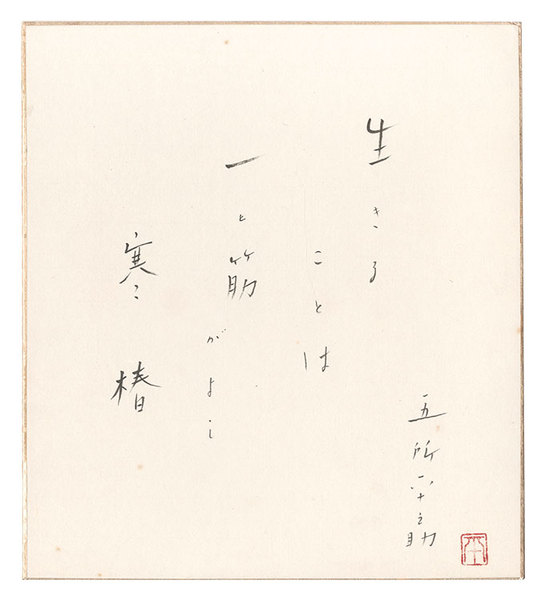 生きる
ことは
一と筋
がよし
寒椿
五所平之助